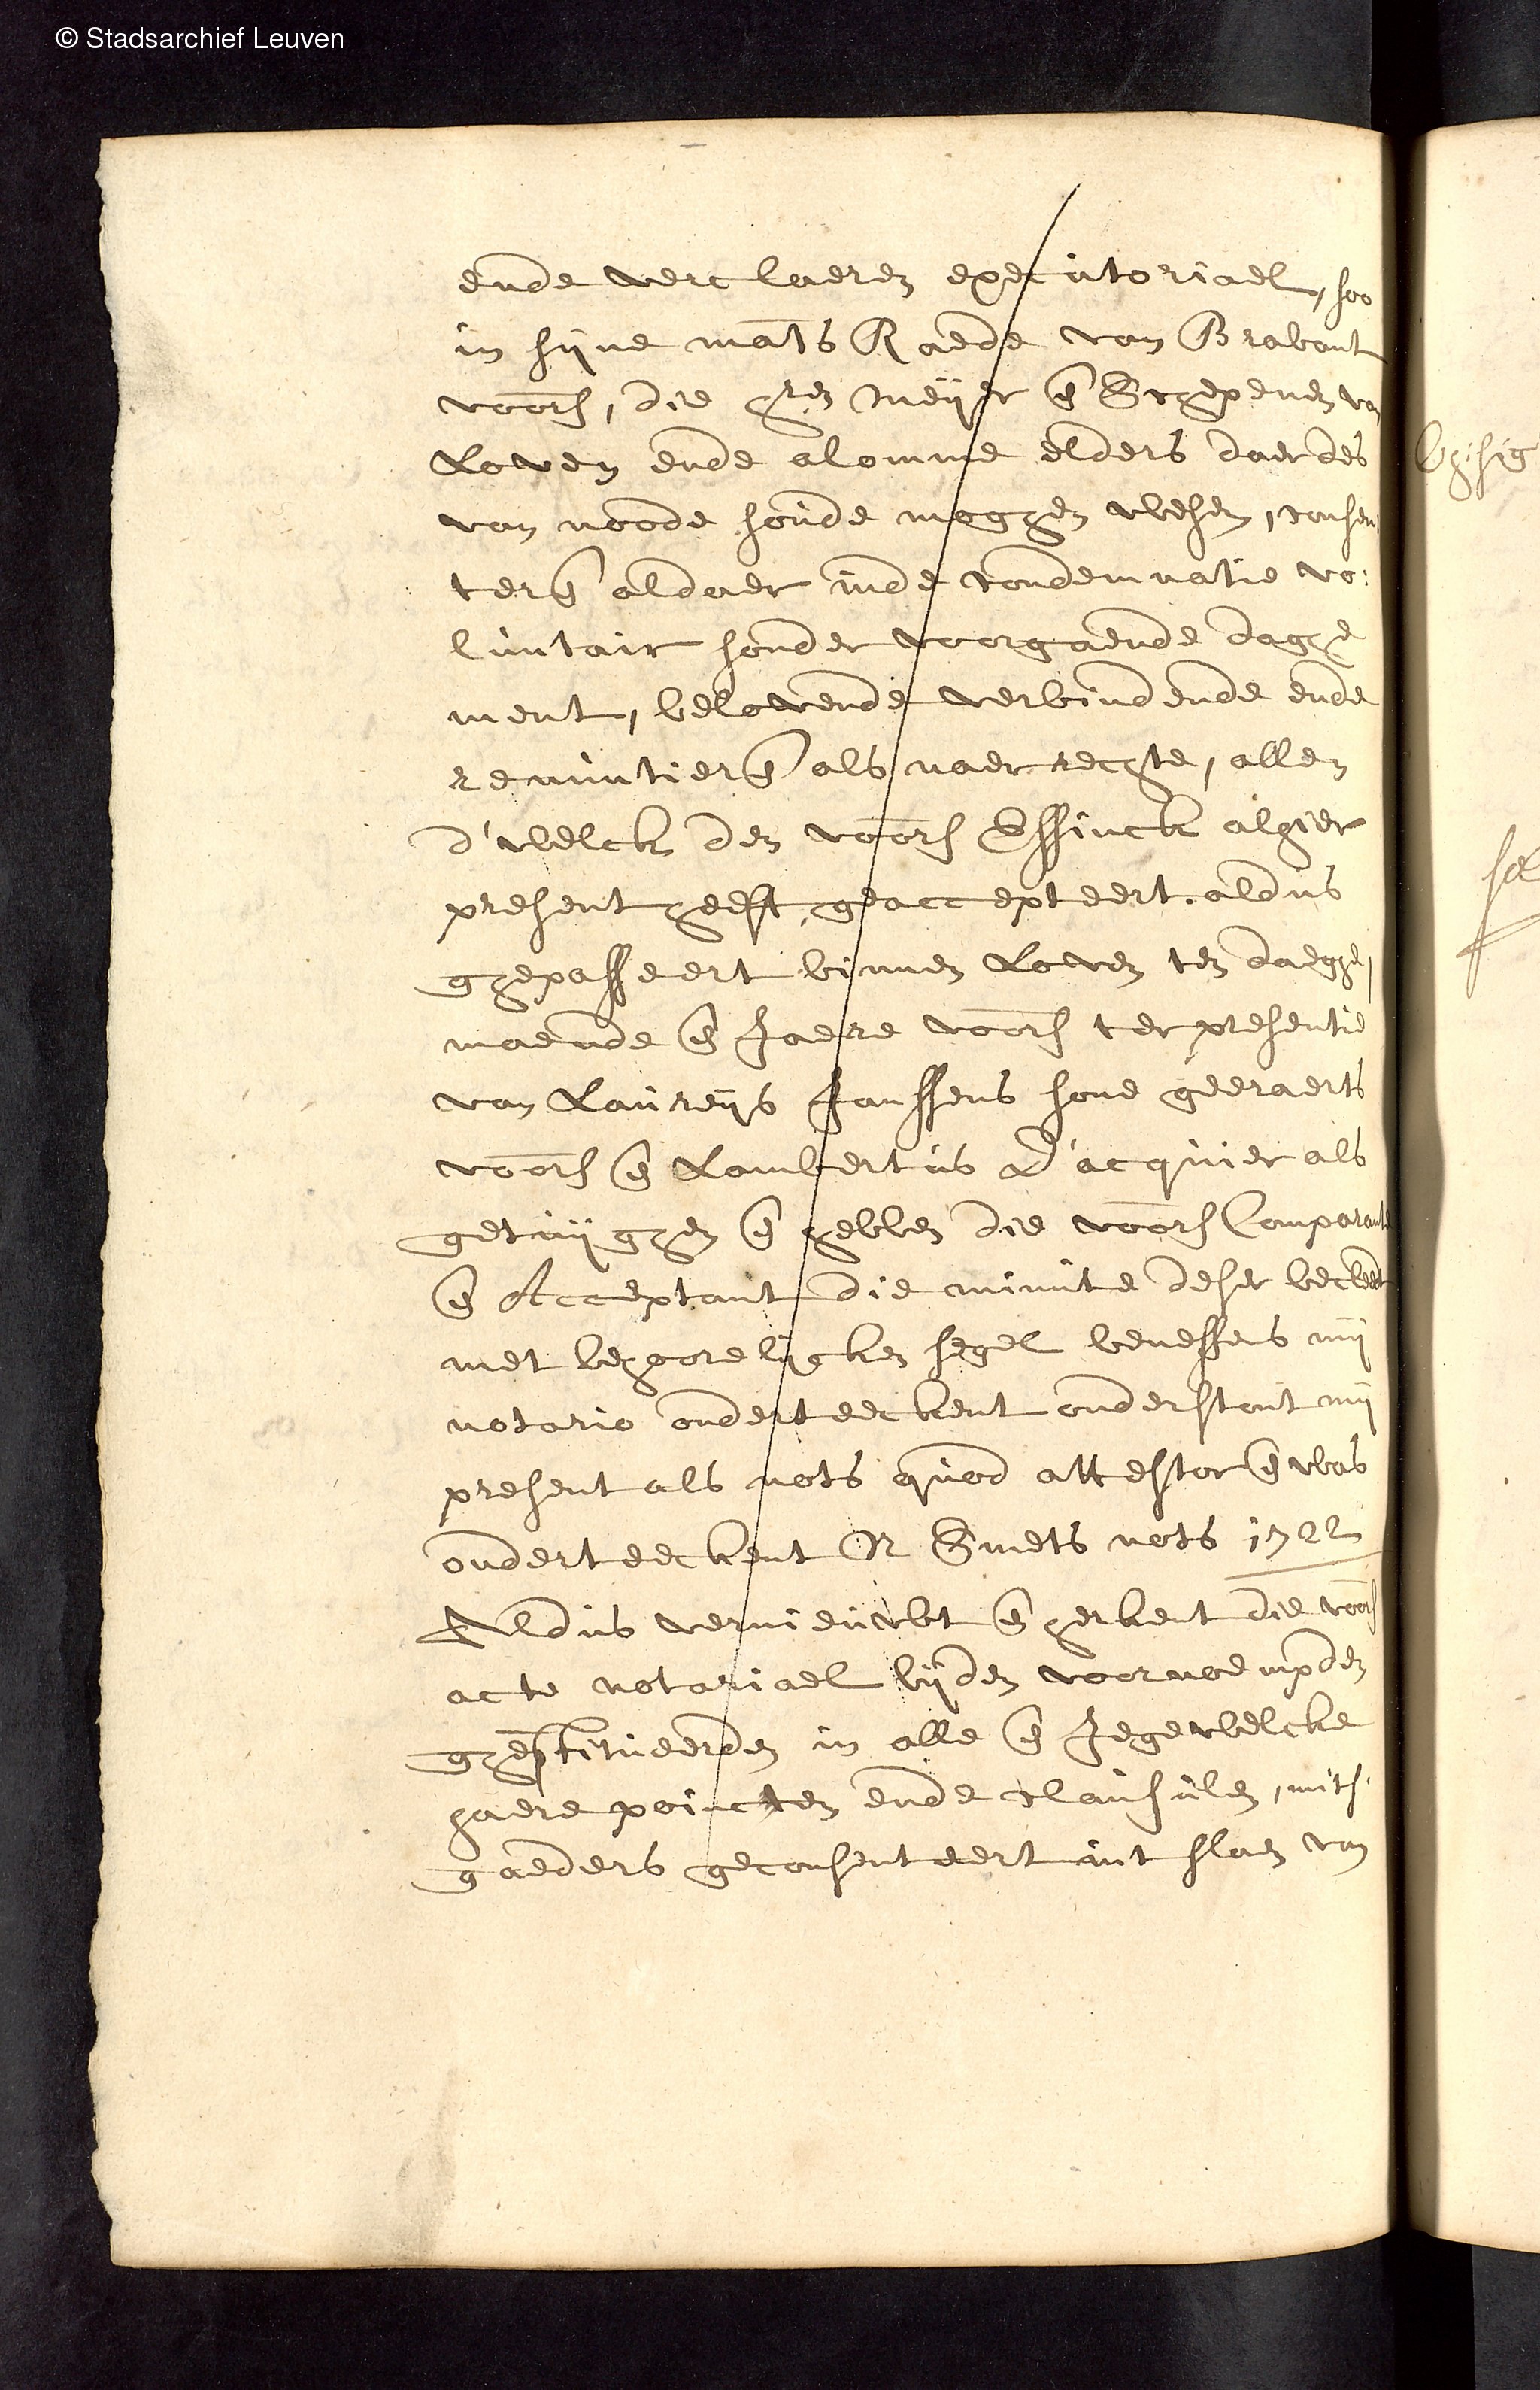 © Stadsarchief Leuven
ende verclaeren executoriael, soo
in sijne mats Raede van Brabant
voors, die hren meijer en Schepenen van
Loven ende alomme elders daer des
van noode soude moghen wesen, consen
teren aldaer inde condemnatie vo:
luntair sonder voorgaende daghe
ment, belovende verbindende ende
renuntieren als naer rechte, allen
d'welck den voors Essinck alhier
present heeft geaccepteert. aldus
ghepasseert binnen Loven ten daeghe,
maende en Jaere voors ter presentie
van Laureijs Janssens sone geeraerts
voors en Lambertus D'acquier als
getuijghen en hebben die voors Comparante
en Acceptant die minute deser becleedt
met behoorelijcken segel beneffens mij
notario onderteeckent onderstont mij
present als nots quod attestor en was
onderteeckent N Smets nots 1722
Aldus vernieuwt en herkent die voors
acte notariael bijden voornoempden
gheconstitueerden in alle en Jegewelcke
haere poincten ende clausulen, mits
gaeders geconsenteert int slaen van